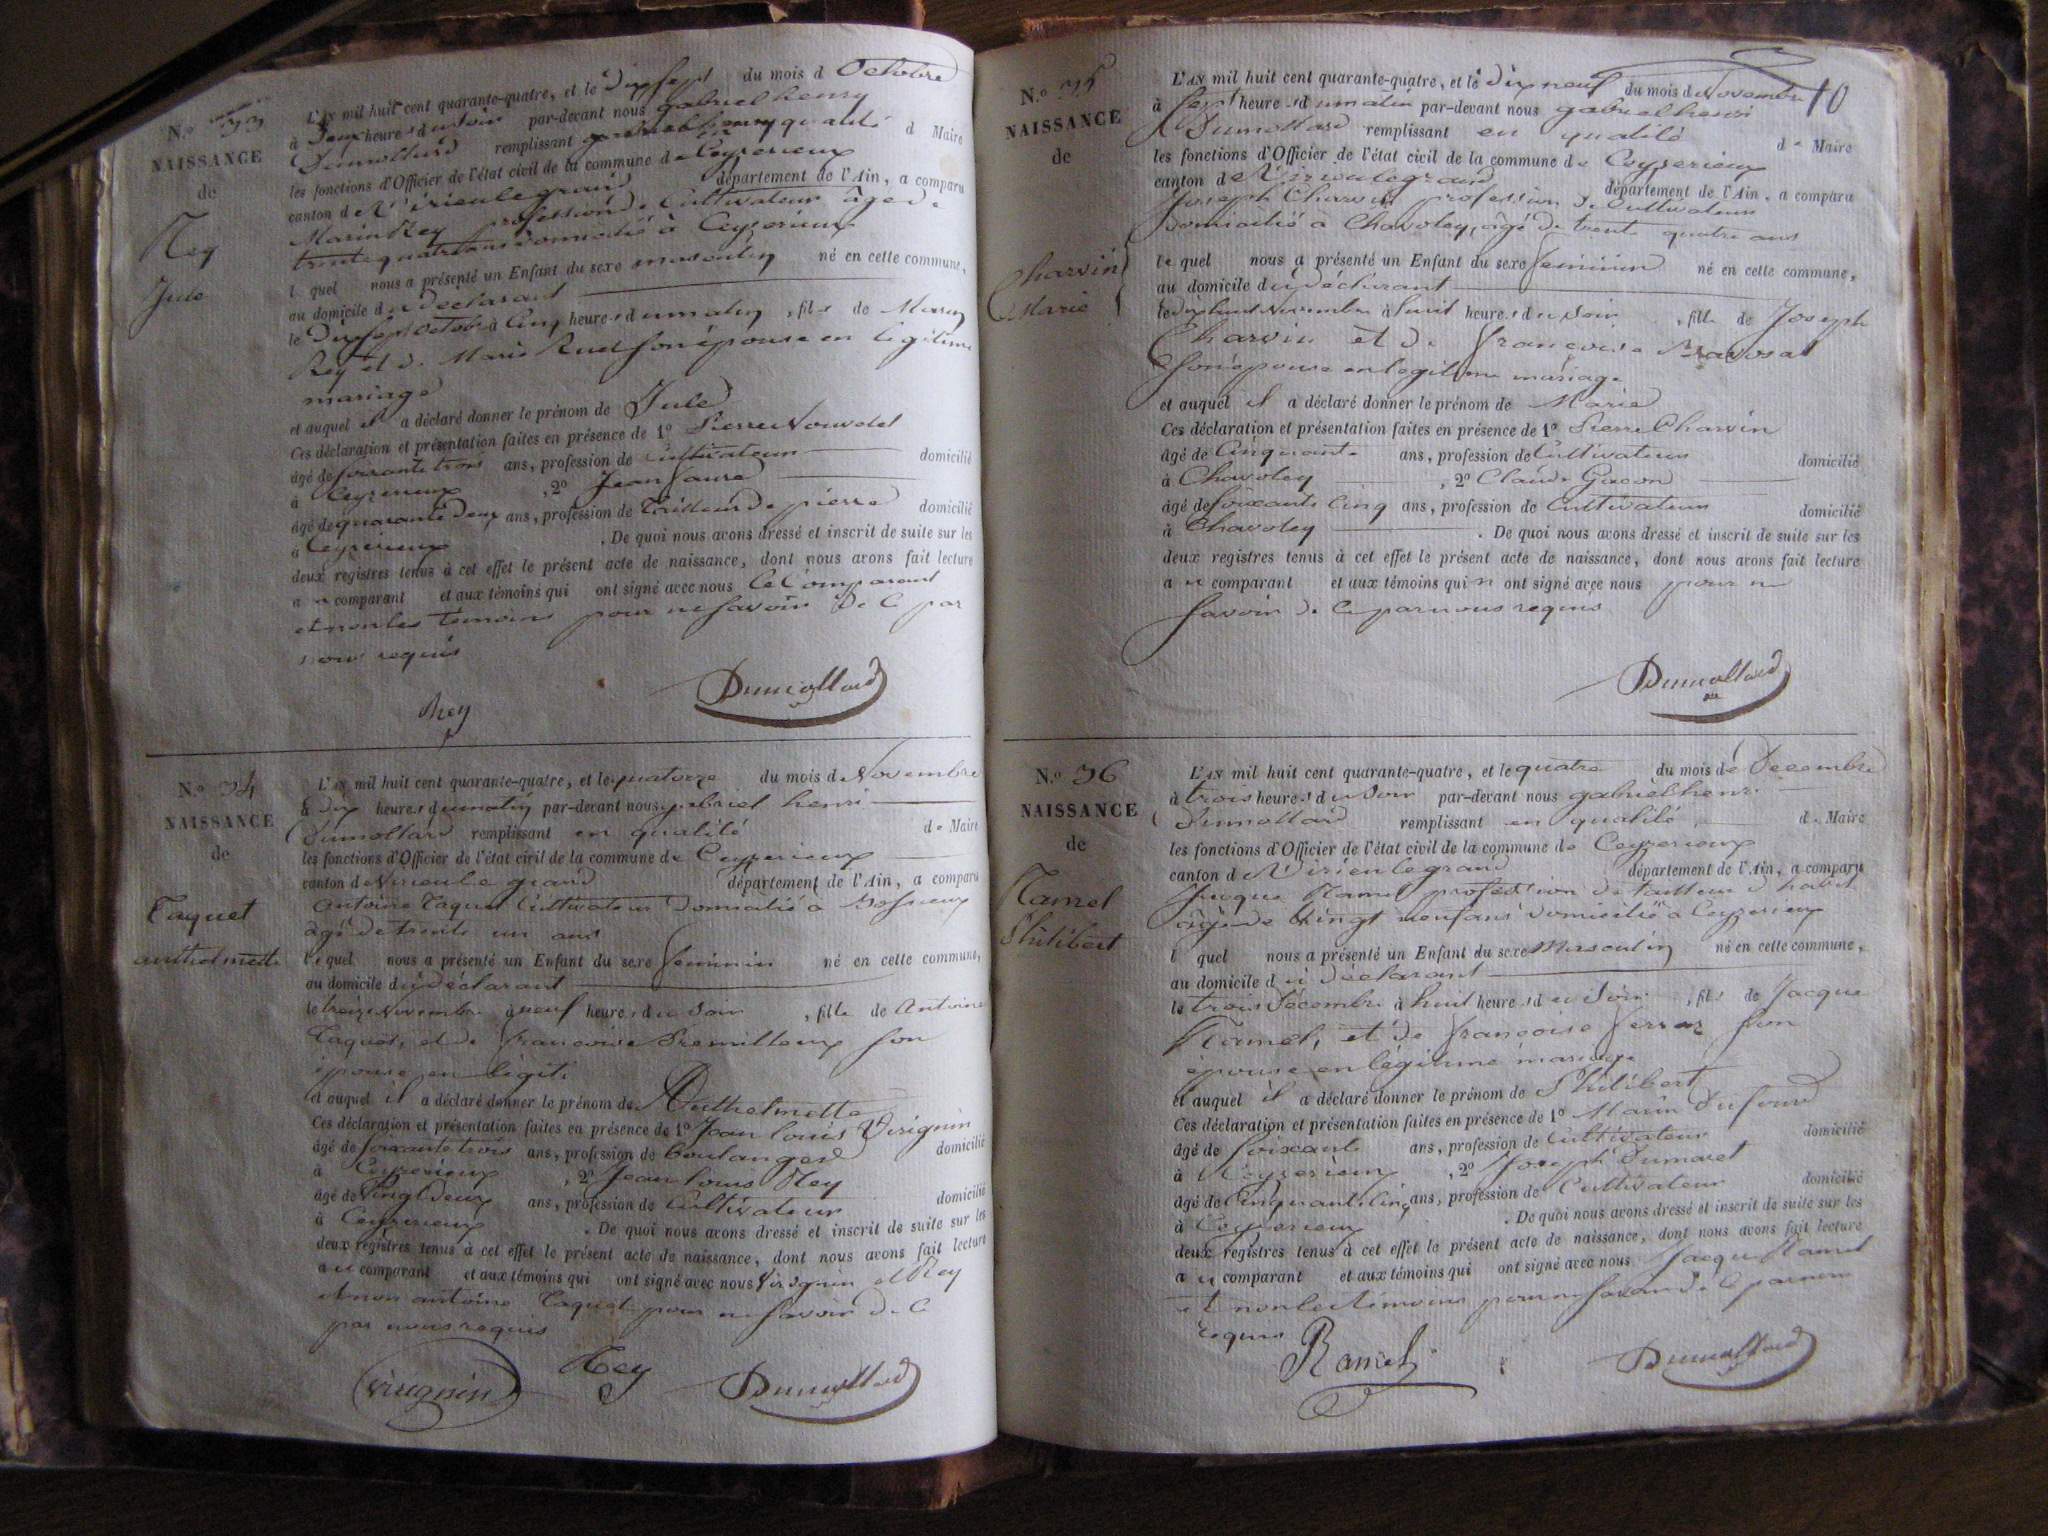 N.º 33
NAISSANCE
de
Rey
Jule
L'AN mil huit cent quarante-quatre, et le Dix sept du mois d Octobre
à Deux heures du soir par-devant nous gabriel henry
Dumollard remplissant qualité d Maire
les fonctions d'Officier de l'état civil de la commune de Ceyzerieux
canton de Virieu le grand département de l'Ain, a comparu
Marin Rey profession de Cultivateur âgé de
trente quatre ans domicilié à Ceyzerieux
l quel nous a présenté un Enfant du sexe masculin né en cette commune,
au domicile du Déclarant
le Dix sept Octobre à Cinq heures du matin, fils de Marin
Rey et de Marie Ruet son épouse en légitime
mariage
et auquel il a déclaré donner le prénom de Jule
Ces déclaration et présentation faites en présence de 1º Pierre Nouvelet
âgé de soixante trois ans, profession de Cultivateur domicilié
à Ceyzerieux, 2º Jean faure
âgé de quarante Deux ans, profession de Tailleur de pierre domicilié
à Ceyzerieux. De quoi nous avons dressé et inscrit de suite sur les
deux registres tenus à cet effet le présent acte de naissance, dont nous avons fait lecture
a u comparant et aux témoins qui ont signé avec nous Le Comparant
et non les témoins pour ne savoir De Ce par
nous requis
Rey Dumollard
N.º 34
NAISSANCE
de
Taquet
anthelmette
L'AN mil huit cent quarante-quatre, et le quatorze du mois de Novembre
à dix heures du matin par-devant nous gabriel henri
Dumollard remplissant en qualité de Maire
les fonctions d'Officier de l'état civil de la commune de Ceyzerieux
canton de Virieu Le grand département de l'Ain, a comparu
Antoine Taquet Cultivateur Domicilié a
âgé de trente un ans
lequel nous a présenté un Enfant du sexe feminin né en cette commune,
au domicile du déclarant
le treize Novembre à neuf heures du soir, fille de Antoine
Taquet, et de françoise Premilleux son
épouse en légiti
et auquel il a déclaré donner le prénom de Anthelmette
Ces déclaration et présentation faites en présence de 1º Jean louis Virignin
âgé de soixante trois ans, profession de boulanger domicilié
à Ceyzerieux, 2º Jean louis Rey
âgé de Vingt Deux ans, profession de Cultivateur domicilié
à Ceyzerieux. De quoi nous avons dressé et inscrit de suite sur les
deux registres tenus à cet effet le présent acte de naissance, dont nous avons fait lecture
a u comparant et aux témoins qui ont signé avec nous Virignin et Rey
et non antoine Taquet pour ne savoir De Ce
par nous requis
Virignin Rey Dumollard
10
N.º 35
NAISSANCE
de
Charvin
Marie
L'AN mil huit cent quarante-quatre, et le Dix neuf du mois de Novembre
à sept heures du matin par-devant nous gabriel henri
Dumollard remplissant en qualité de Maire
les fonctions d'Officier de l'état civil de la commune de Ceyzerieux
canton de Virieu le grand département de l'Ain, a comparu
Joseph Charvin profession de Cultivateur
Domicilié à Chavoley, âgé de trente quatre ans
le quel nous a présenté un Enfant du sexe feminin né en cette commune,
au domicile du déclarant
le dix huit Novembre à huit heures du soir, fille de Joseph
Charvin et de françoise
son épouse en legitime mariage
et auquel il a déclaré donner le prénom de Marie
Ces déclaration et présentation faites en présence de 1º Pierre Charvin
âgé de Cinquante ans, profession de Cultivateur domicilié
à Chavoley, 2º Claude Gacon
âgé de soixante Cinq ans, profession de Cultivateur domicilié
à Chavoley. De quoi nous avons dressé et inscrit de suite sur les
deux registres tenus à cet effet le présent acte de naissance, dont nous avons fait lecture
a u comparant et aux témoins qui n ont signé avec nous pour ne
savoir de Ce par nous requis
Dumollard
N.º 36
NAISSANCE
de
Ramel
Philibert
L'AN mil huit cent quarante-quatre, et le quatre du mois de Decembre
à trois heures du soir par-devant nous gabriel henri
Dumollard remplissant en qualité de Maire
les fonctions d'Officier de l'état civil de la commune de Ceyzerieux
canton de Virieu le grand département de l'Ain, a comparu
Jacque Ramel profession de tailleur d habit
âgé de Vingt neuf ans domicilié à Ceyzerieux
l quel nous a présenté un Enfant du sexe Masculin né en cette commune,
au domicile du Déclarant
le trois Décembre à huit heures du Soir, fils de Jacque
Ramel, et de françoise ferraz son
épouse en légitime mariage
et auquel il a déclaré donner le prénom de Philibert
Ces déclaration et présentation faites en présence de 1º Marin Dufour
âgé de soixante ans, profession de Cultivateur domicilié
à Ceyzerieux, 2º Joseph Dumaret
âgé de Cinquante Cinq ans, profession de Cultivateur domicilié
à Ceyzerieux. De quoi nous avons dressé et inscrit de suite sur les
deux registres tenus à cet effet le présent acte de naissance, dont nous avons fait lecture
a u comparant et aux témoins qui ont signé avec nous Jacque Ramel
et non les témoins pour ne savoir de Ce par nous
requis
Ramel Dumollard